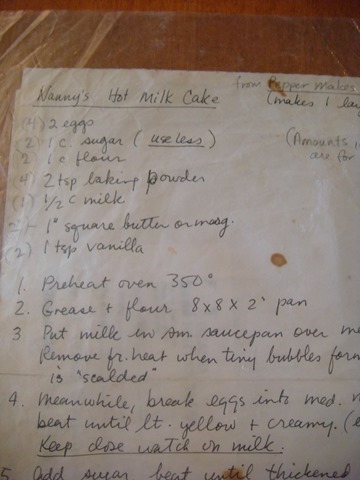 from Pepper Makes
Nanny's Hot Milk Cake (makes 1 lay
(4) 2 eggs
(2) 1 c. sugar (use less) (Amounts i
2) 1 c flour are for
4) 2 tsp baking powder
(1) 1/2 c milk
2 + 1" square butter or marg.
(2) 1 tsp vanilla
1. Preheat oven 350°
2. Grease + flour 8x8x2" pan
3 Put milk in sm. saucepan over me
Remove fr. heat when tiny bubbles form
is "scalded"
4. Meanwhile, break eggs into med.
beat until lt. yellow + creamy. (e
Keep close watch on milk.
5. Add sugar beat until thickened